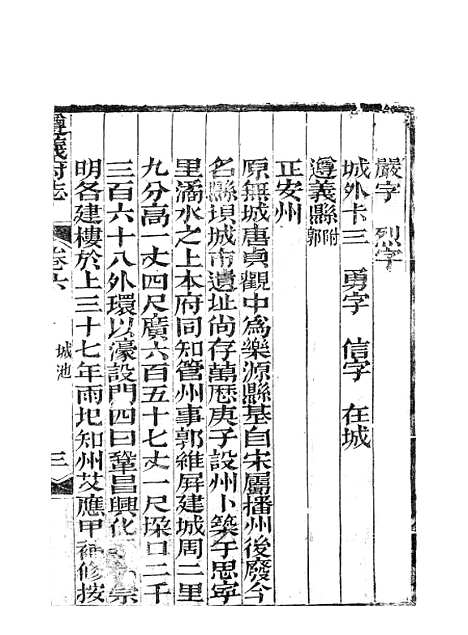 嚴字　烈字
城外卡三　勇字　信字　在城
遵義縣附郭
正安州
原無城唐貞觀中為樂源縣基自宋屬播州後廢今
名縣壩城市遺址尚存萬歷庚子設州卜築于思寧
里滀水之上本府同知管州事郭維屏建城周二里
九分高一丈四尺廣六百五十七丈一尺垜口二千
三百六十八外環以濠設門四曰鞏昌興化宗
明各建樓於上三十七年雨圮知州艾應甲補修按
遵義府志
卷六
城池
三